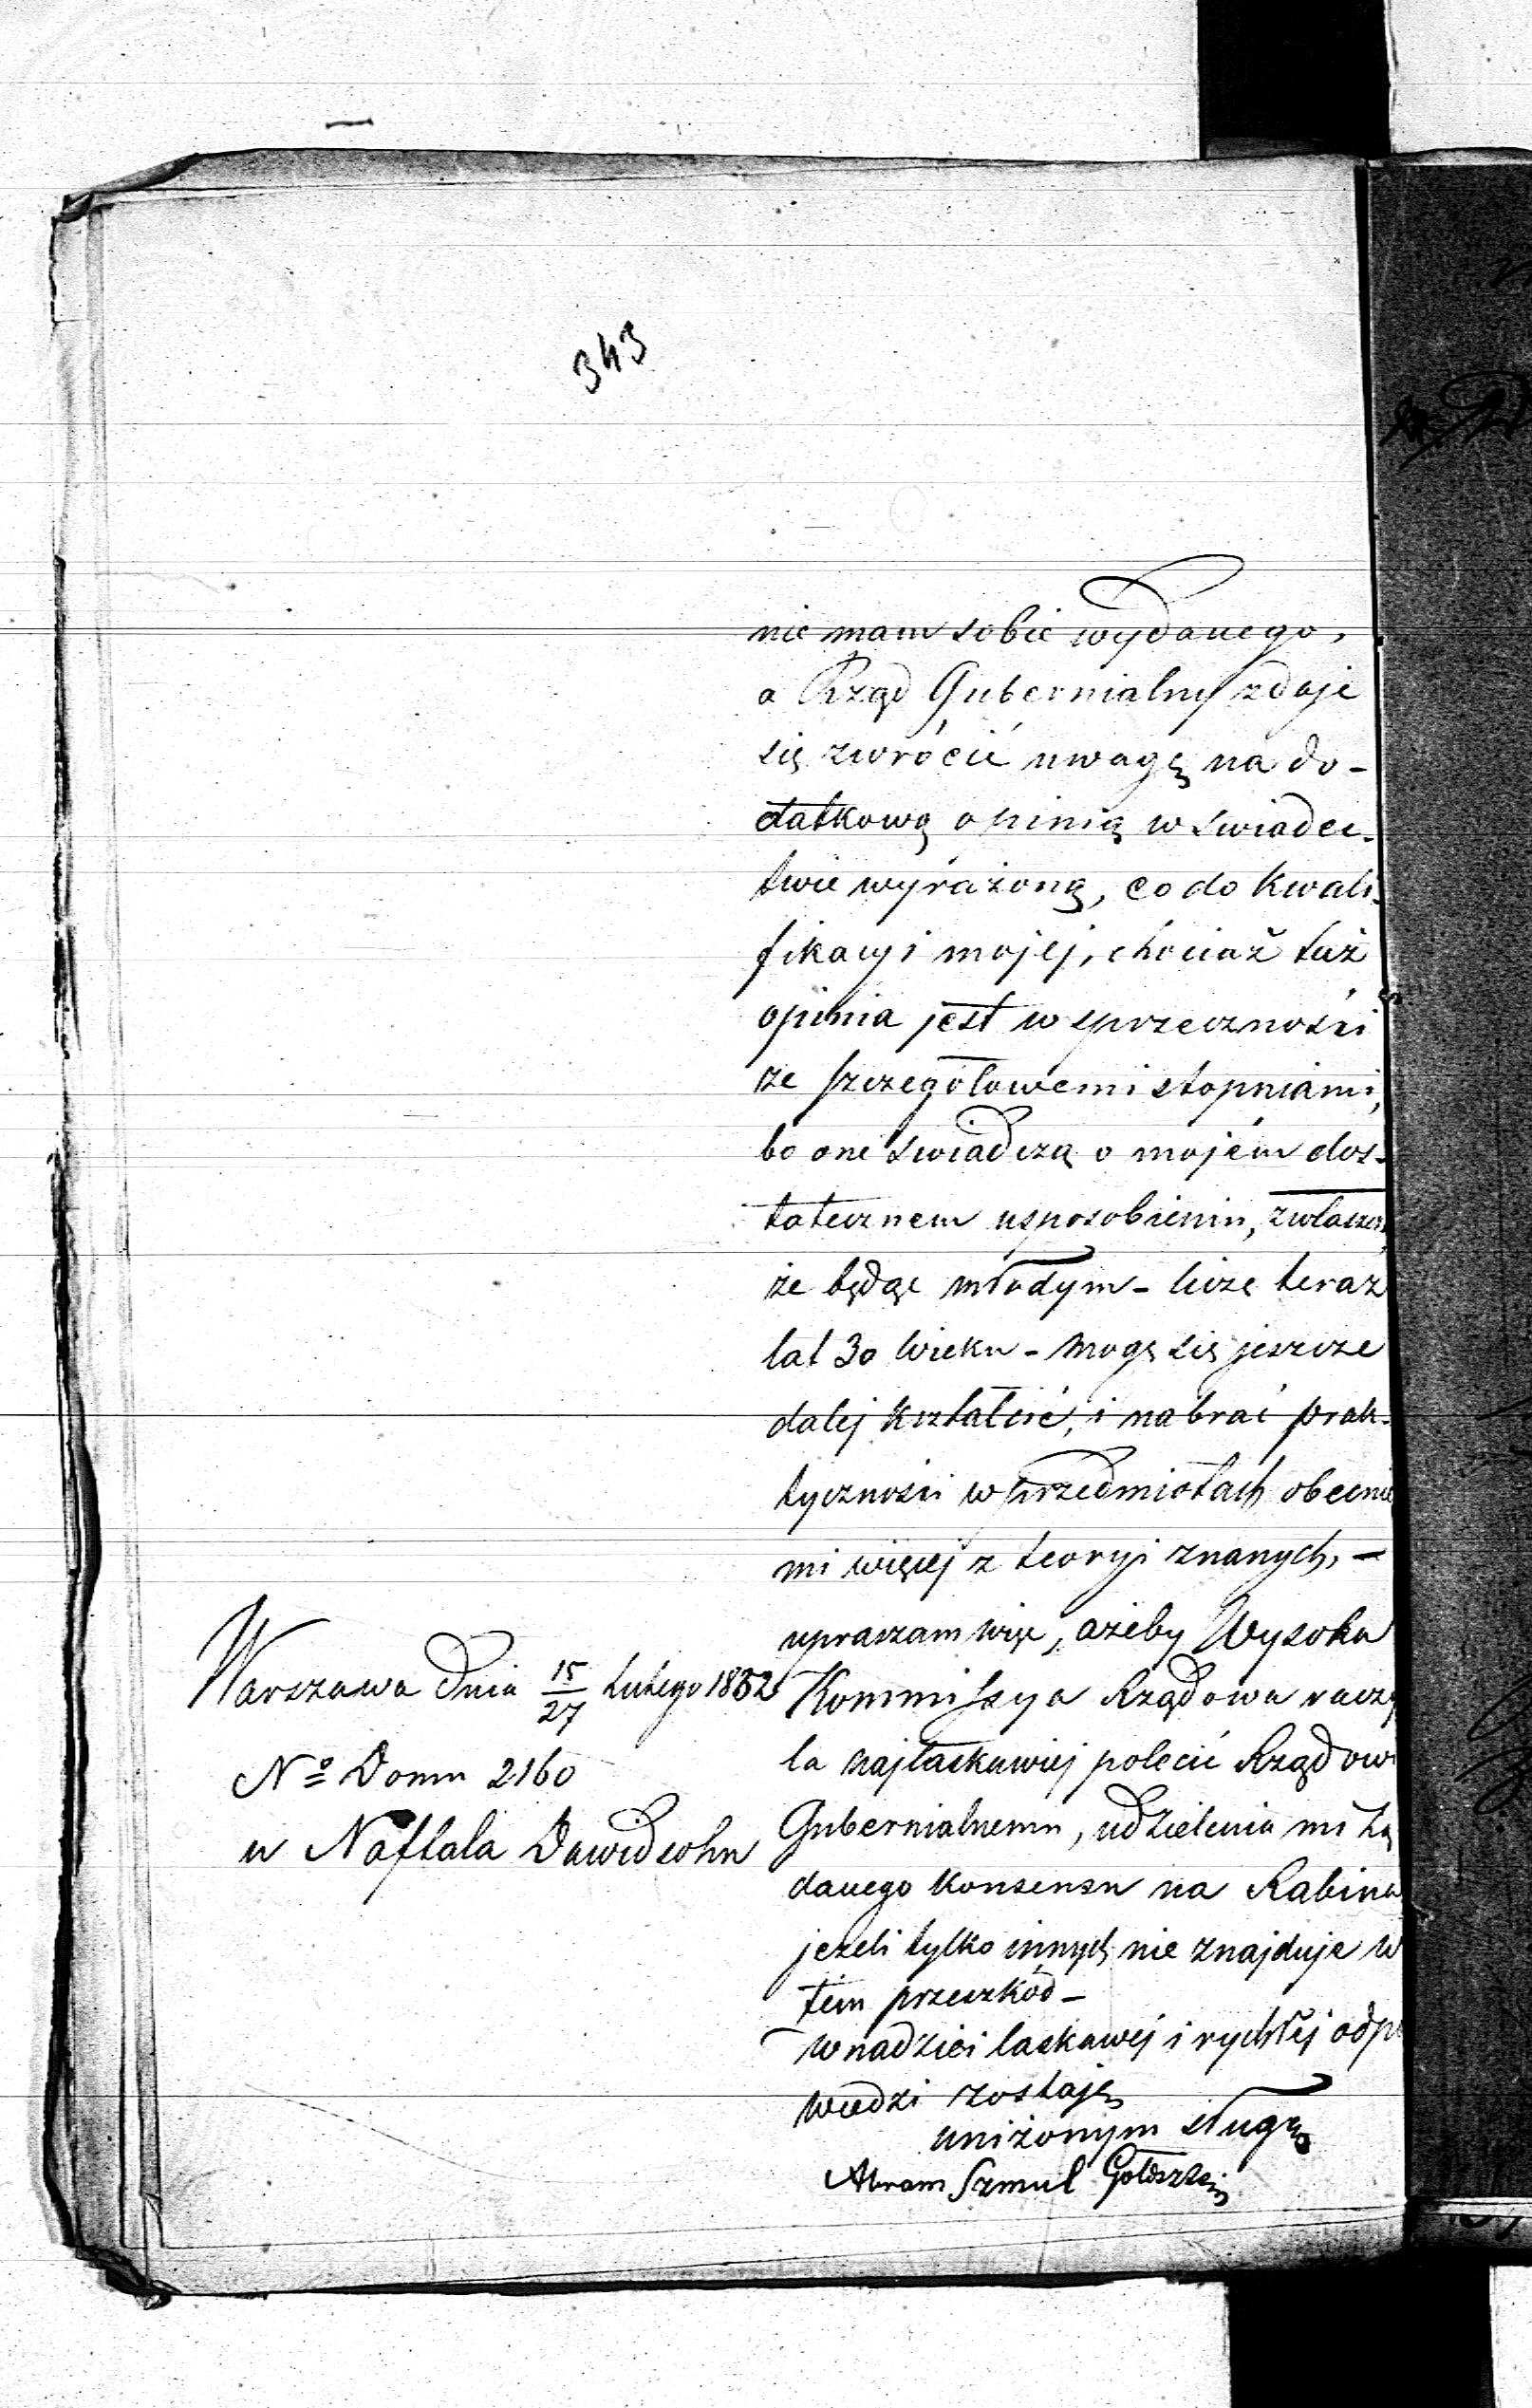 343
nie mam sobie wydanego,
a Rząd Gubernialny zdaje
się zwrócić uwagę na do-
datkową opinią w swiadec-
twie wyrażoną, co do kwali-
fikacyi mojej, chociaż taż
opinia jest w sprzeczności
ze szczegółowemi stopniami,
bo one świadczą o mojém dos-
tatecznem usposobieniu, zwłaszcza
że będąc młodym - liczę teraz
lat 30 wieku - mogę się jeszcze
dalej kształcić, i nabrać prak-
tyczności w przedmiotach obecnie
mi więcej z teoryi znanych, -
upraszam więc, ażeby Wysoka
Kommissya Rządowa raczy
ła najłaskawiej polecić Rządowi
Gubernialnemu, udzielenia mi żą
danego konsensu na Rabina
jezeli tylko innych nie znajduje w
tém przeszkód -
W nadziei łaskawéj i rychłéj odpo
wiedzi zostaję
uniżonym sługą
Abram Szmul Goldsztein
Warszawa dnia 15/27 Lutego 1862
No Domu 2160
u Naftala Dawidsohn